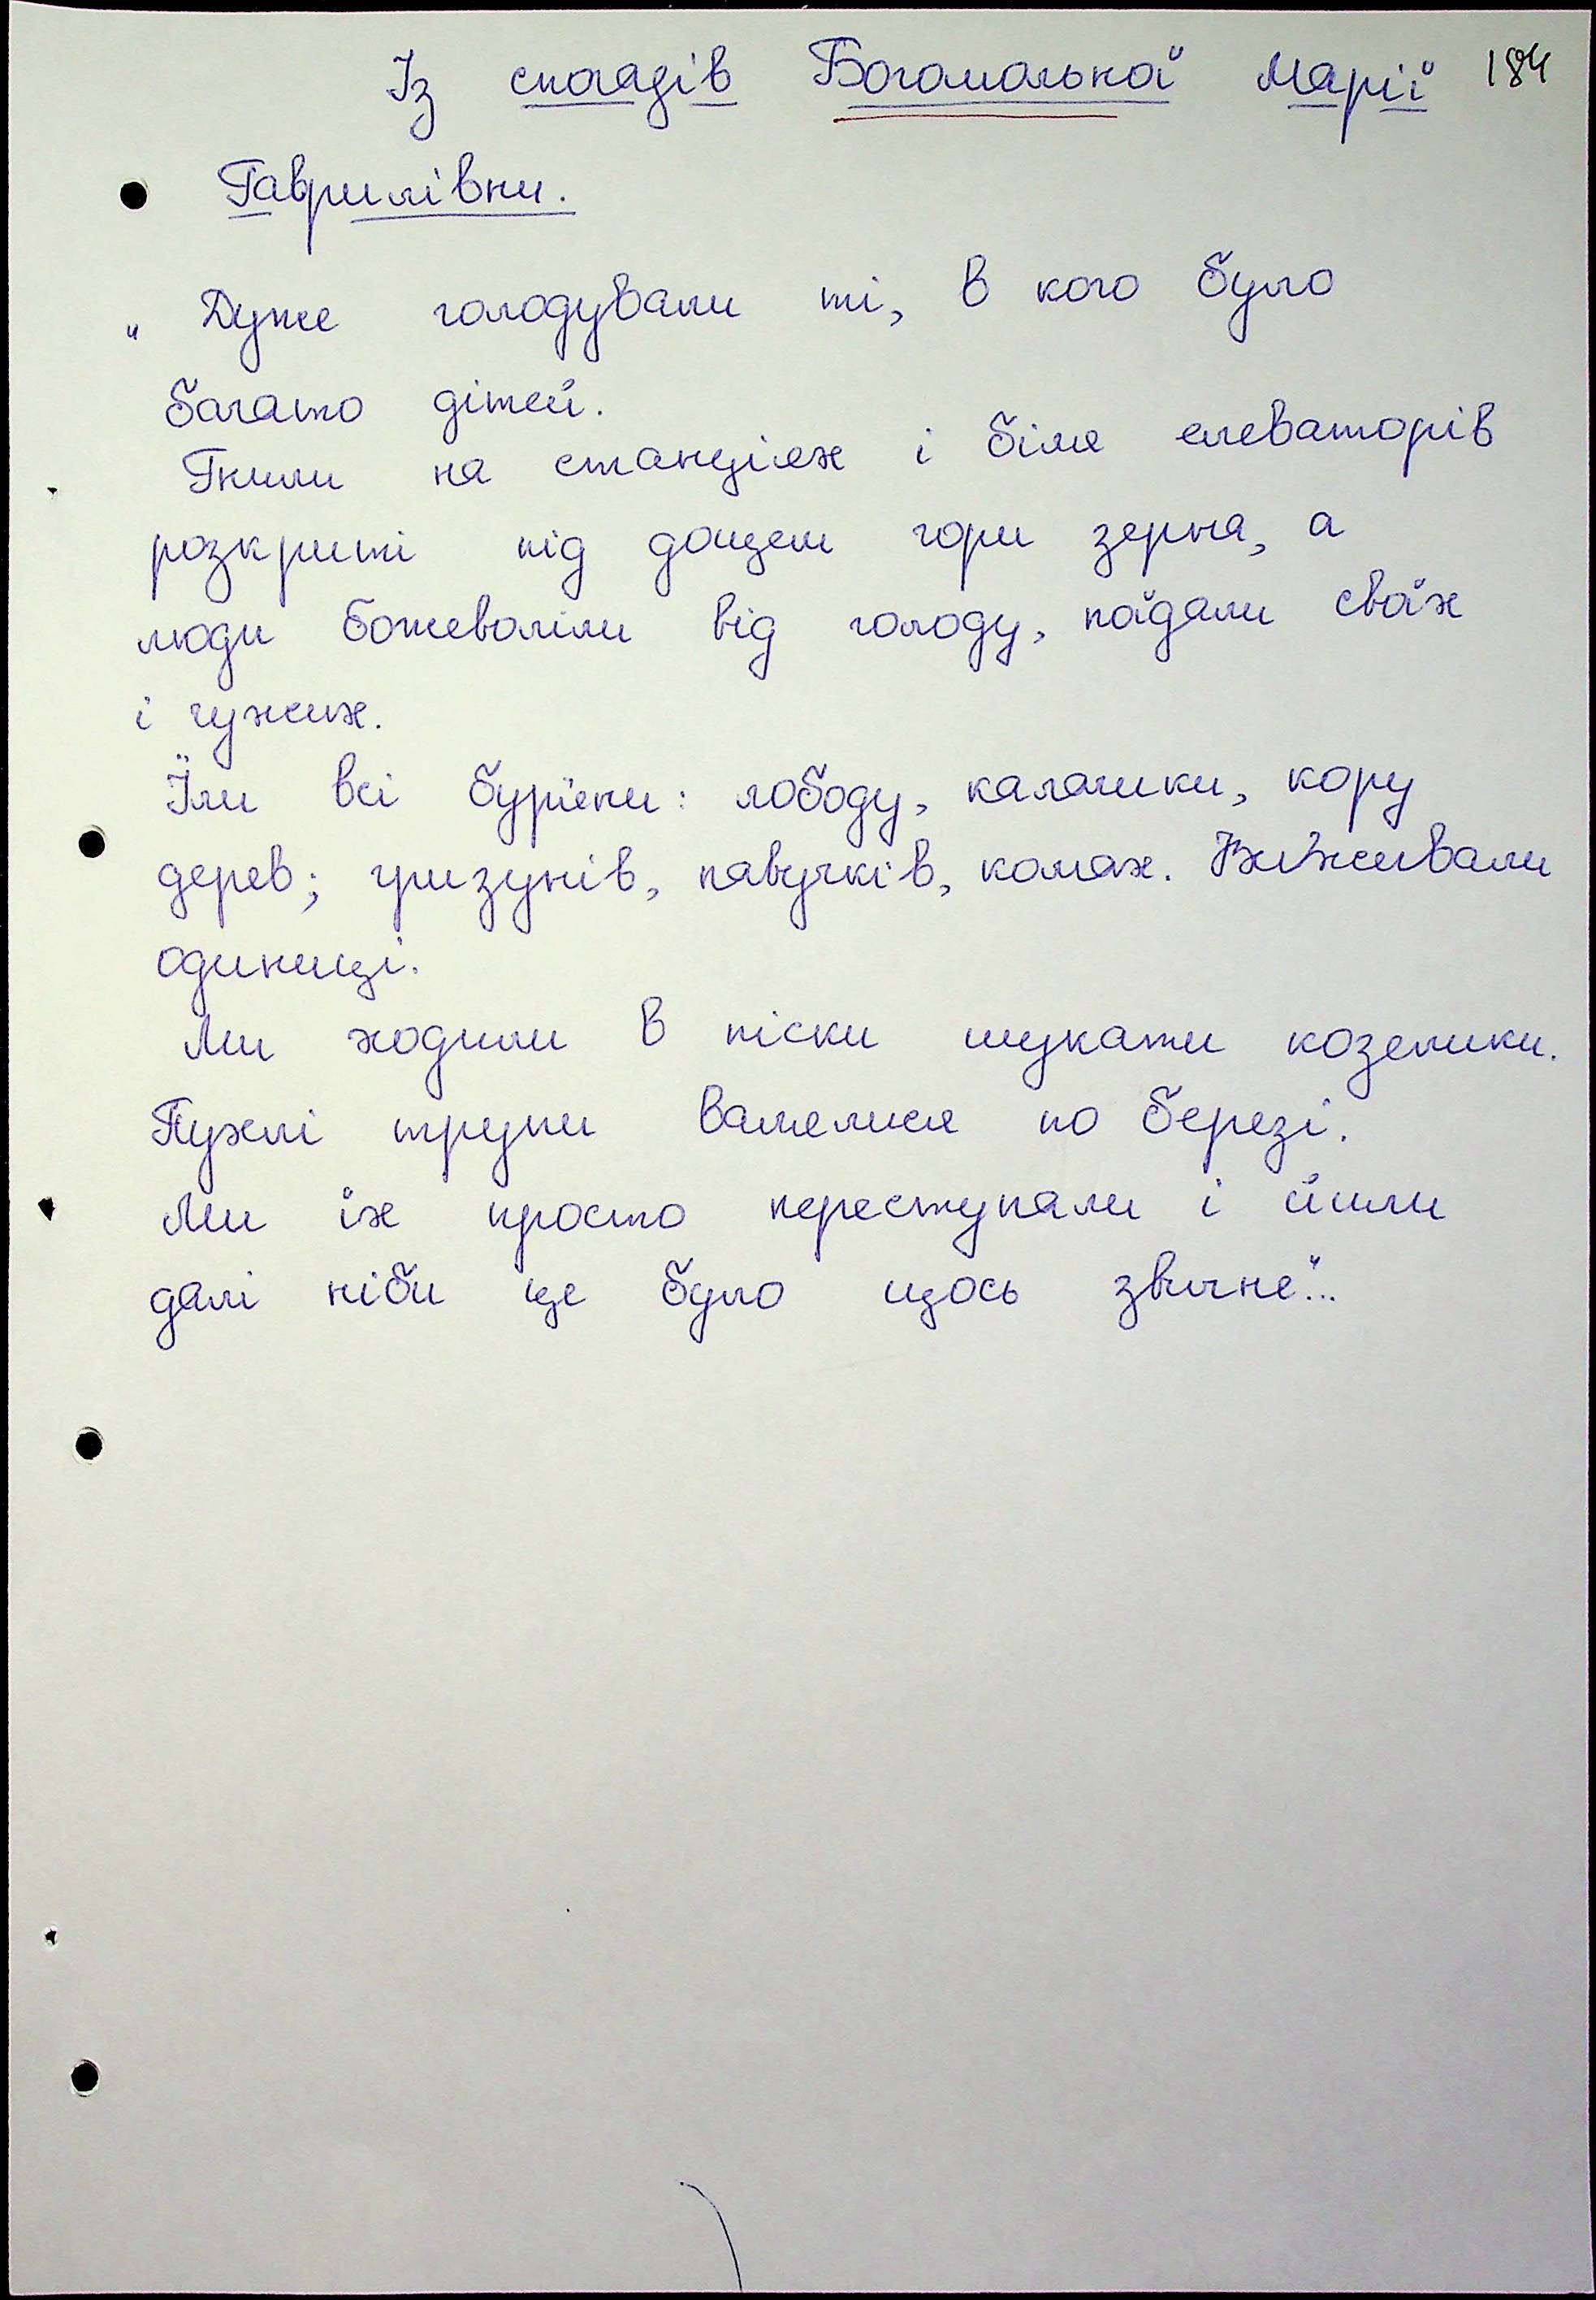 Із спогадів Богомолької Марії 184
Гаврилівни.
„Дуже голодували ті, в кого було
багато дітей.
Гнили на станціях і біля елеваторів
розкриті під дощем гори зерна, а
люди божеволіли від голоду, поїдали своїх
і чужих.
Їли всі бур'яни: лободу, калачики, кору
дерев; гризунів, павучків, комах. Виживали
одиниці.
Ми ходили в піски шукати козелики.
Пухлі трупи валялися по березі.
Ми їх просто переступали і йшли
далі ніби це було щось звичне"...